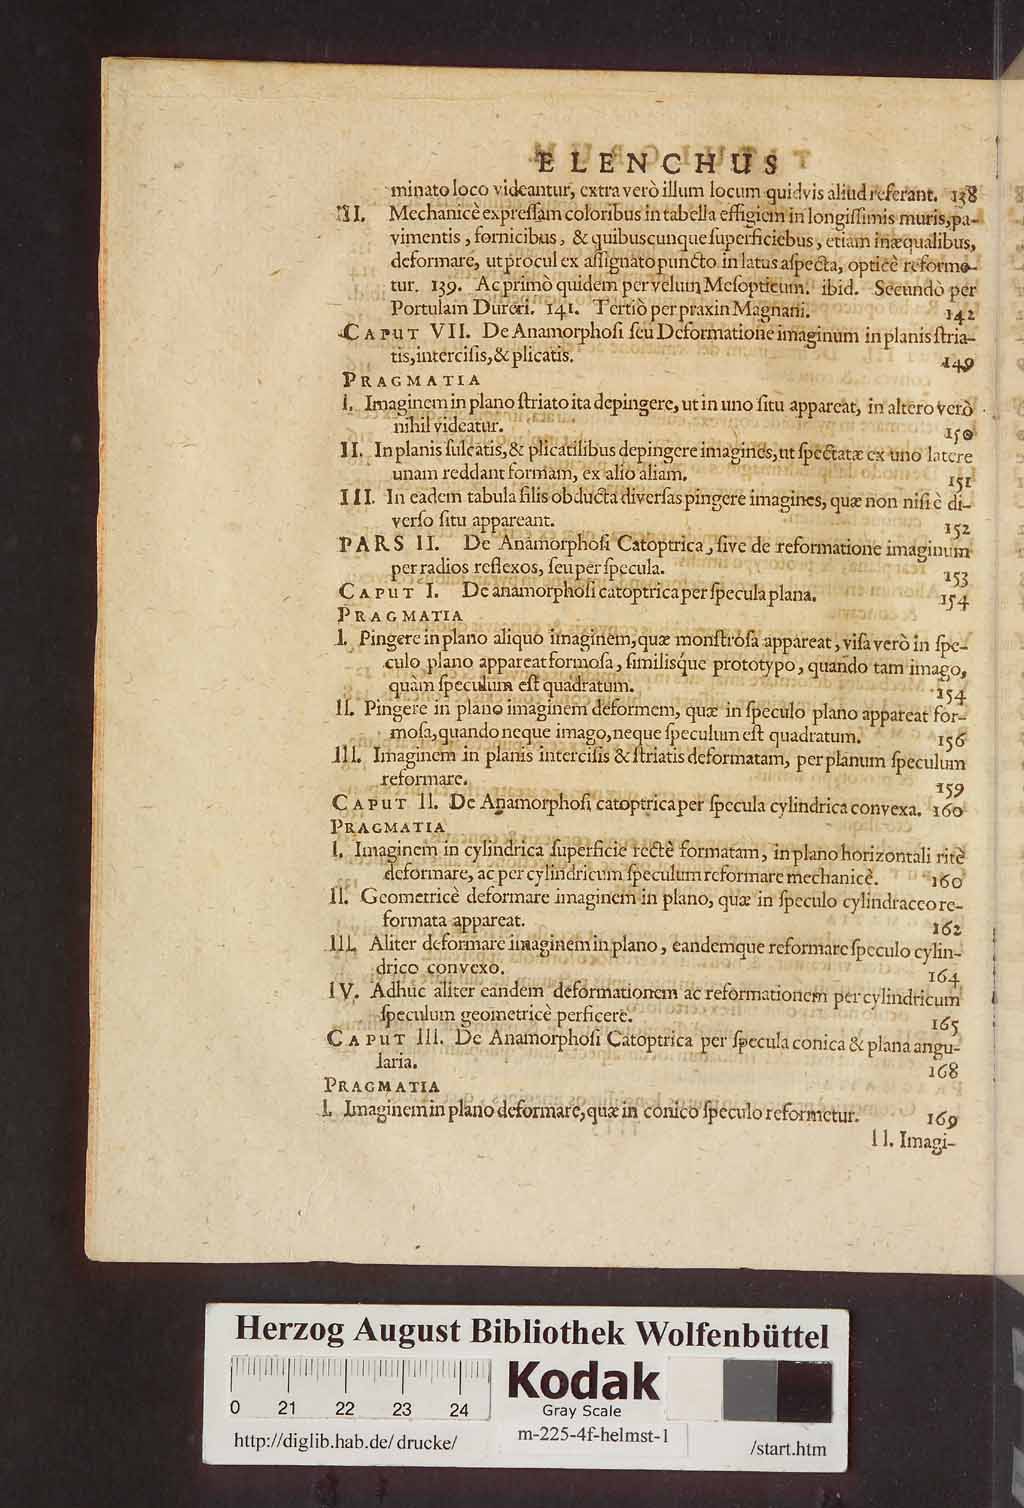 ELENCHUS
minato loco videantur, extra verò illum locum quidvis aliud referant. 138
III. Mechanicè expreſſam coloribus in tabella effigiem in longiſſimis muris, pa-
vimentis, fornicibus, & quibuscunque ſuperficiebus, etiam inæqualibus,
deformare, ut procul ex aſſignato puncto in latus aſpecta, opticè reforme-
tur. 139. Ac primò quidem per velum Meſopticum. ibid. Secundò per
Portulam Dureri. 141. Tertiò per praxin Magnani. 142
CAPUT VII. De Anamorphoſi ſeu Deformatione imaginum in planis ſtria-
tis, interciſis, & plicatis. 149
PRAGMATIA
I. Imaginem in plano ſtriato ita depingere, ut in uno ſitu appareat, in altero verò
nihil videatur. 150
II. In planis ſulcatis, & plicatilibus depingere imagines, ut ſpectatæ ex uno latere
unam reddant formam, ex alio aliam. 151
III. In eadem tabula filis obducta diverſas pingere imagines, quæ non niſi è di-
verſo ſitu appareant. 152
PARS II. De Anamorphoſi Catoptrica, ſive de reformatione imaginum
per radios reflexos, ſeu per ſpecula. 153
CAPUT I. De anamorphoſi catoptrica per ſpecula plana. 154
PRAGMATIA
I. Pingere in plano aliquo imaginem, quæ monſtroſa appareat, viſa verò in ſpe-
culo plano appareat formoſa, ſimilisque prototypo, quando tam imago,
quàm ſpeculum eſt quadratum. 154
II. Pingere in plano imaginem deformem, quæ in ſpeculo plano appareat for-
moſa, quando neque imago, neque ſpeculum eſt quadratum. 156
III. Imaginem in planis interciſis & ſtriatis deformatam, per planum ſpeculum
reformare. 159
CAPUT II. De Anamorphoſi catoptrica per ſpecula cylindrica convexa. 160
PRAGMATIA
I. Imaginem in cylindrica ſuperficie rectè formatam, in plano horizontali ritè
deformare, ac per cylindricum ſpeculum reformare mechanicè. 160
II. Geometricè deformare imaginem in plano, quæ in ſpeculo cylindraceo re-
formata appareat. 162
III. Aliter deformare imaginem in plano, eandemque reformare ſpeculo cylin-
drico convexo. 164
IV. Adhuc aliter eandem deformationem ac reformationem per cylindricum
ſpeculum geometricè perficere. 165
CAPUT III. De Anamorphoſi Catoptrica per ſpecula conica & plana angu-
laria. 168
PRAGMATIA
I. Imaginem in plano deformare, quæ in conico ſpeculo reformetur. 169
II. Imagi-
Herzog August Bibliothek Wolfenbüttel
0 21 22 23 24
Kodak
Gray Scale
http://diglib.hab.de/drucke/ m-225-4f-helmst-1 /start.htm